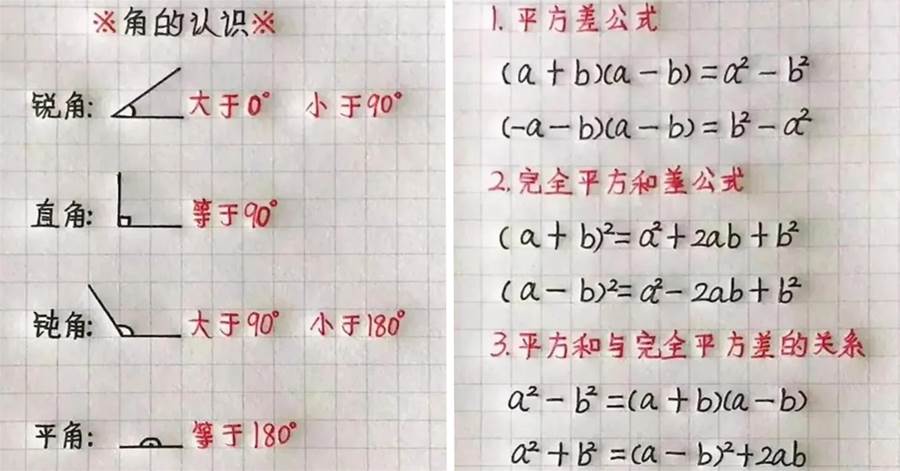 ※角的认识※
锐角: 大于0° 小于90°
直角: 等于90°
钝角: 大于90° 小于180°
平角: 等于180°
1. 平方差公式
(a + b)(a - b) = a² - b²
(-a - b)(a - b) = b² - a²
2. 完全平方和差公式
(a + b)² = a² + 2ab + b²
(a - b)² = a² - 2ab + b²
3. 平方和与完全平方差的关系
a² - b² = (a + b)(a - b)
a² + b² = (a - b)² + 2ab